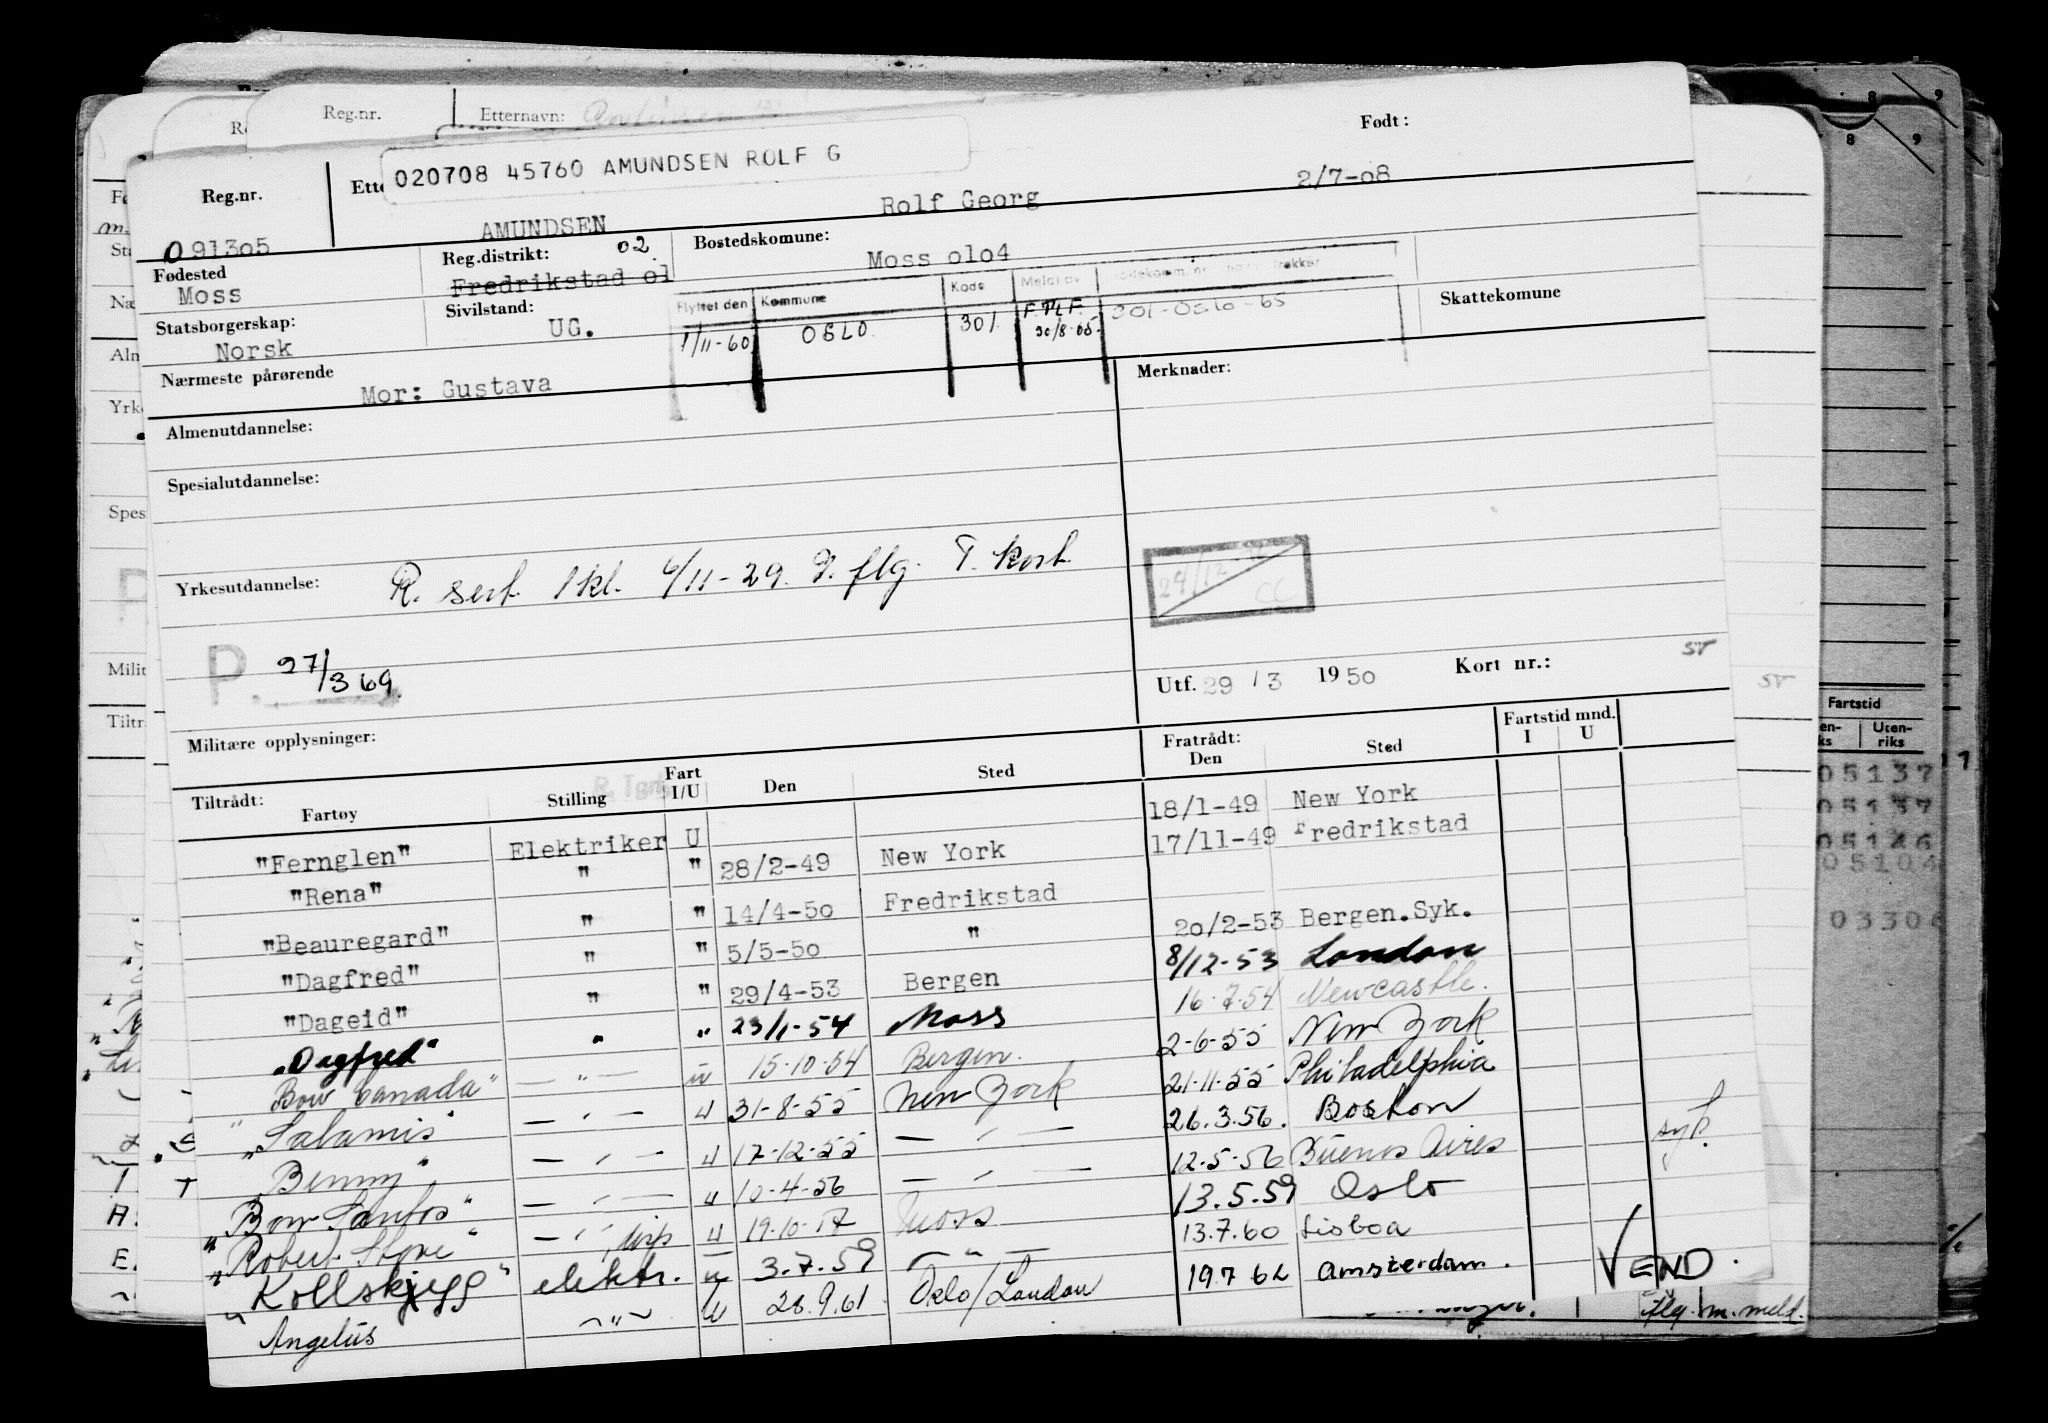 Reg.nr. Etternavn:
020708 45760 AMUNDSEN ROLF G
Født:
Reg.nr. AMUNDSEN Rolf Georg 2/7-08
091305
Fødested Reg.distrikt: 02 Bostedskomune:
Moss Fredrikstad ol Moss olo4
Flyttet den Kommune Kode
Statsborgerskap: Sivilstand: Skattekomune
Norsk UG. 1/11-60 OSLO 301 F.Pl.F. 301-Oslo-65
Nærmeste pårørende
Mor: Gustava
Merknader:
Almenutdannelse:
Spesialutdannelse:
Yrkesutdannelse: R. sert. 1 kl. 6/11-29. I. flg. T. kort.
P. 27/3 69.
Utf. 29 / 3 1950 Kort nr.:
ST
Militære opplysninger:
Tiltrådt: Fratrådt: Fartstid mnd.
Fartøy Stilling Fart I/U Den Sted Den Sted I U
R. Tgrf.
"Fernglen" Elektriker U 18/1-49 New York
"Rena" " " 28/2-49 New York 17/11-49 Fredrikstad
"Beauregard" " " 14/4-5o Fredrikstad
"Dagfred" " " 5/5-5o " 2o/2-53 Bergen.Syk.
"Dageid" " " 29/4-53 Bergen 8/12-53 London
"Dagfred" " " 23/1-54 Moss 16-7-54 Newcastle.
"Bow Canada" — " — u 15-10-54 Bergen. 2-6-55 New York
"Salamis" — " — u 31-8-55 New York 21-11-55 Philadelphia
"Benny" — " — u 17-12-55 — " — 26.3.56. Boston
"Bow Santos" — " — u 10-4-56 — " — 12-5-56 Buenos Aires syk.
"Robert Stove" — " — u 19-10-57 Moss 13.5.59 Oslo
"Kollskjegg" elektr. u 3.7.59 — " — 13.7.60 Lisboa
Angelus —"— u 28.9.61 Oslo/London 19 7 62 Amsterdam.
VEND.
flg. m. meld.
Fartstid
Utenriks
05137
05137
05146
05104